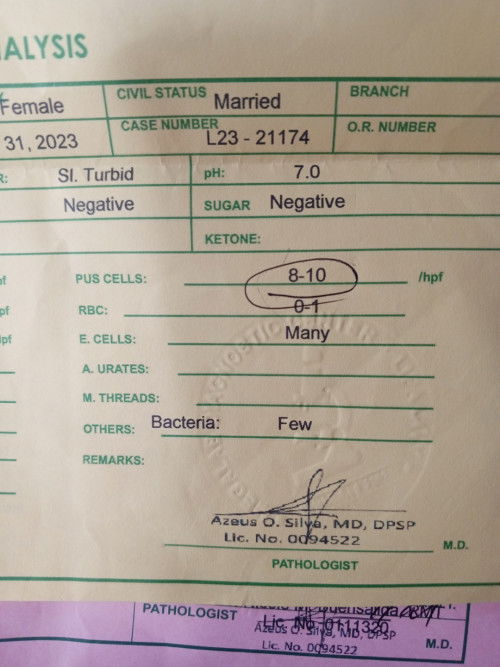 ALYSIS
Female CIVIL STATUS Married BRANCH
31, 2023 CASE NUMBER L23 - 21174 O.R. NUMBER
R: Sl. Turbid pH: 7.0
Negative SUGAR Negative
KETONE:
PUS CELLS: 8-10 /hpf
RBC: 0-1
E. CELLS: Many
A. URATES:
M. THREADS:
OTHERS: Bacteria: Few
REMARKS:
Azeus O. Silva, MD, DPSP
Lic. No. 0094522
M.D.
PATHOLOGIST
PATHOLOGIST
Lic. No. 0111320
Azeus O. Silva, MD, DPSP
Lic. No. 0094522
M.D.